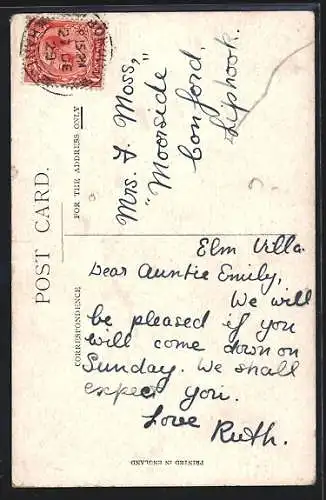 POST CARD.
CORRESPONDENCE
FOR THE ADDRESS ONLY
Mrs. A. Moss,
"Moorside"
Conford,
Liphook.
Elm Villa.
Dear Auntie Emily,
We will
be pleased if you
will come down on
Sunday. We shall
expect you.
Love
Ruth.
PRINTED IN ENGLAND